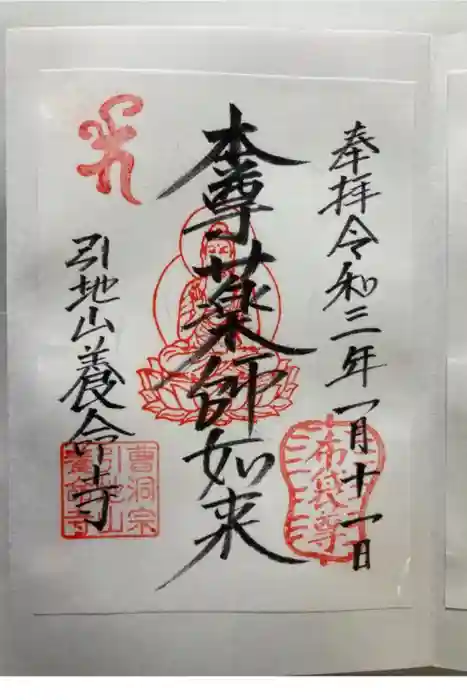 奉拝令和三年一月十一日
本尊薬師如来
引地山養命寺
布袋尊
曹洞宗
引地山
養命寺